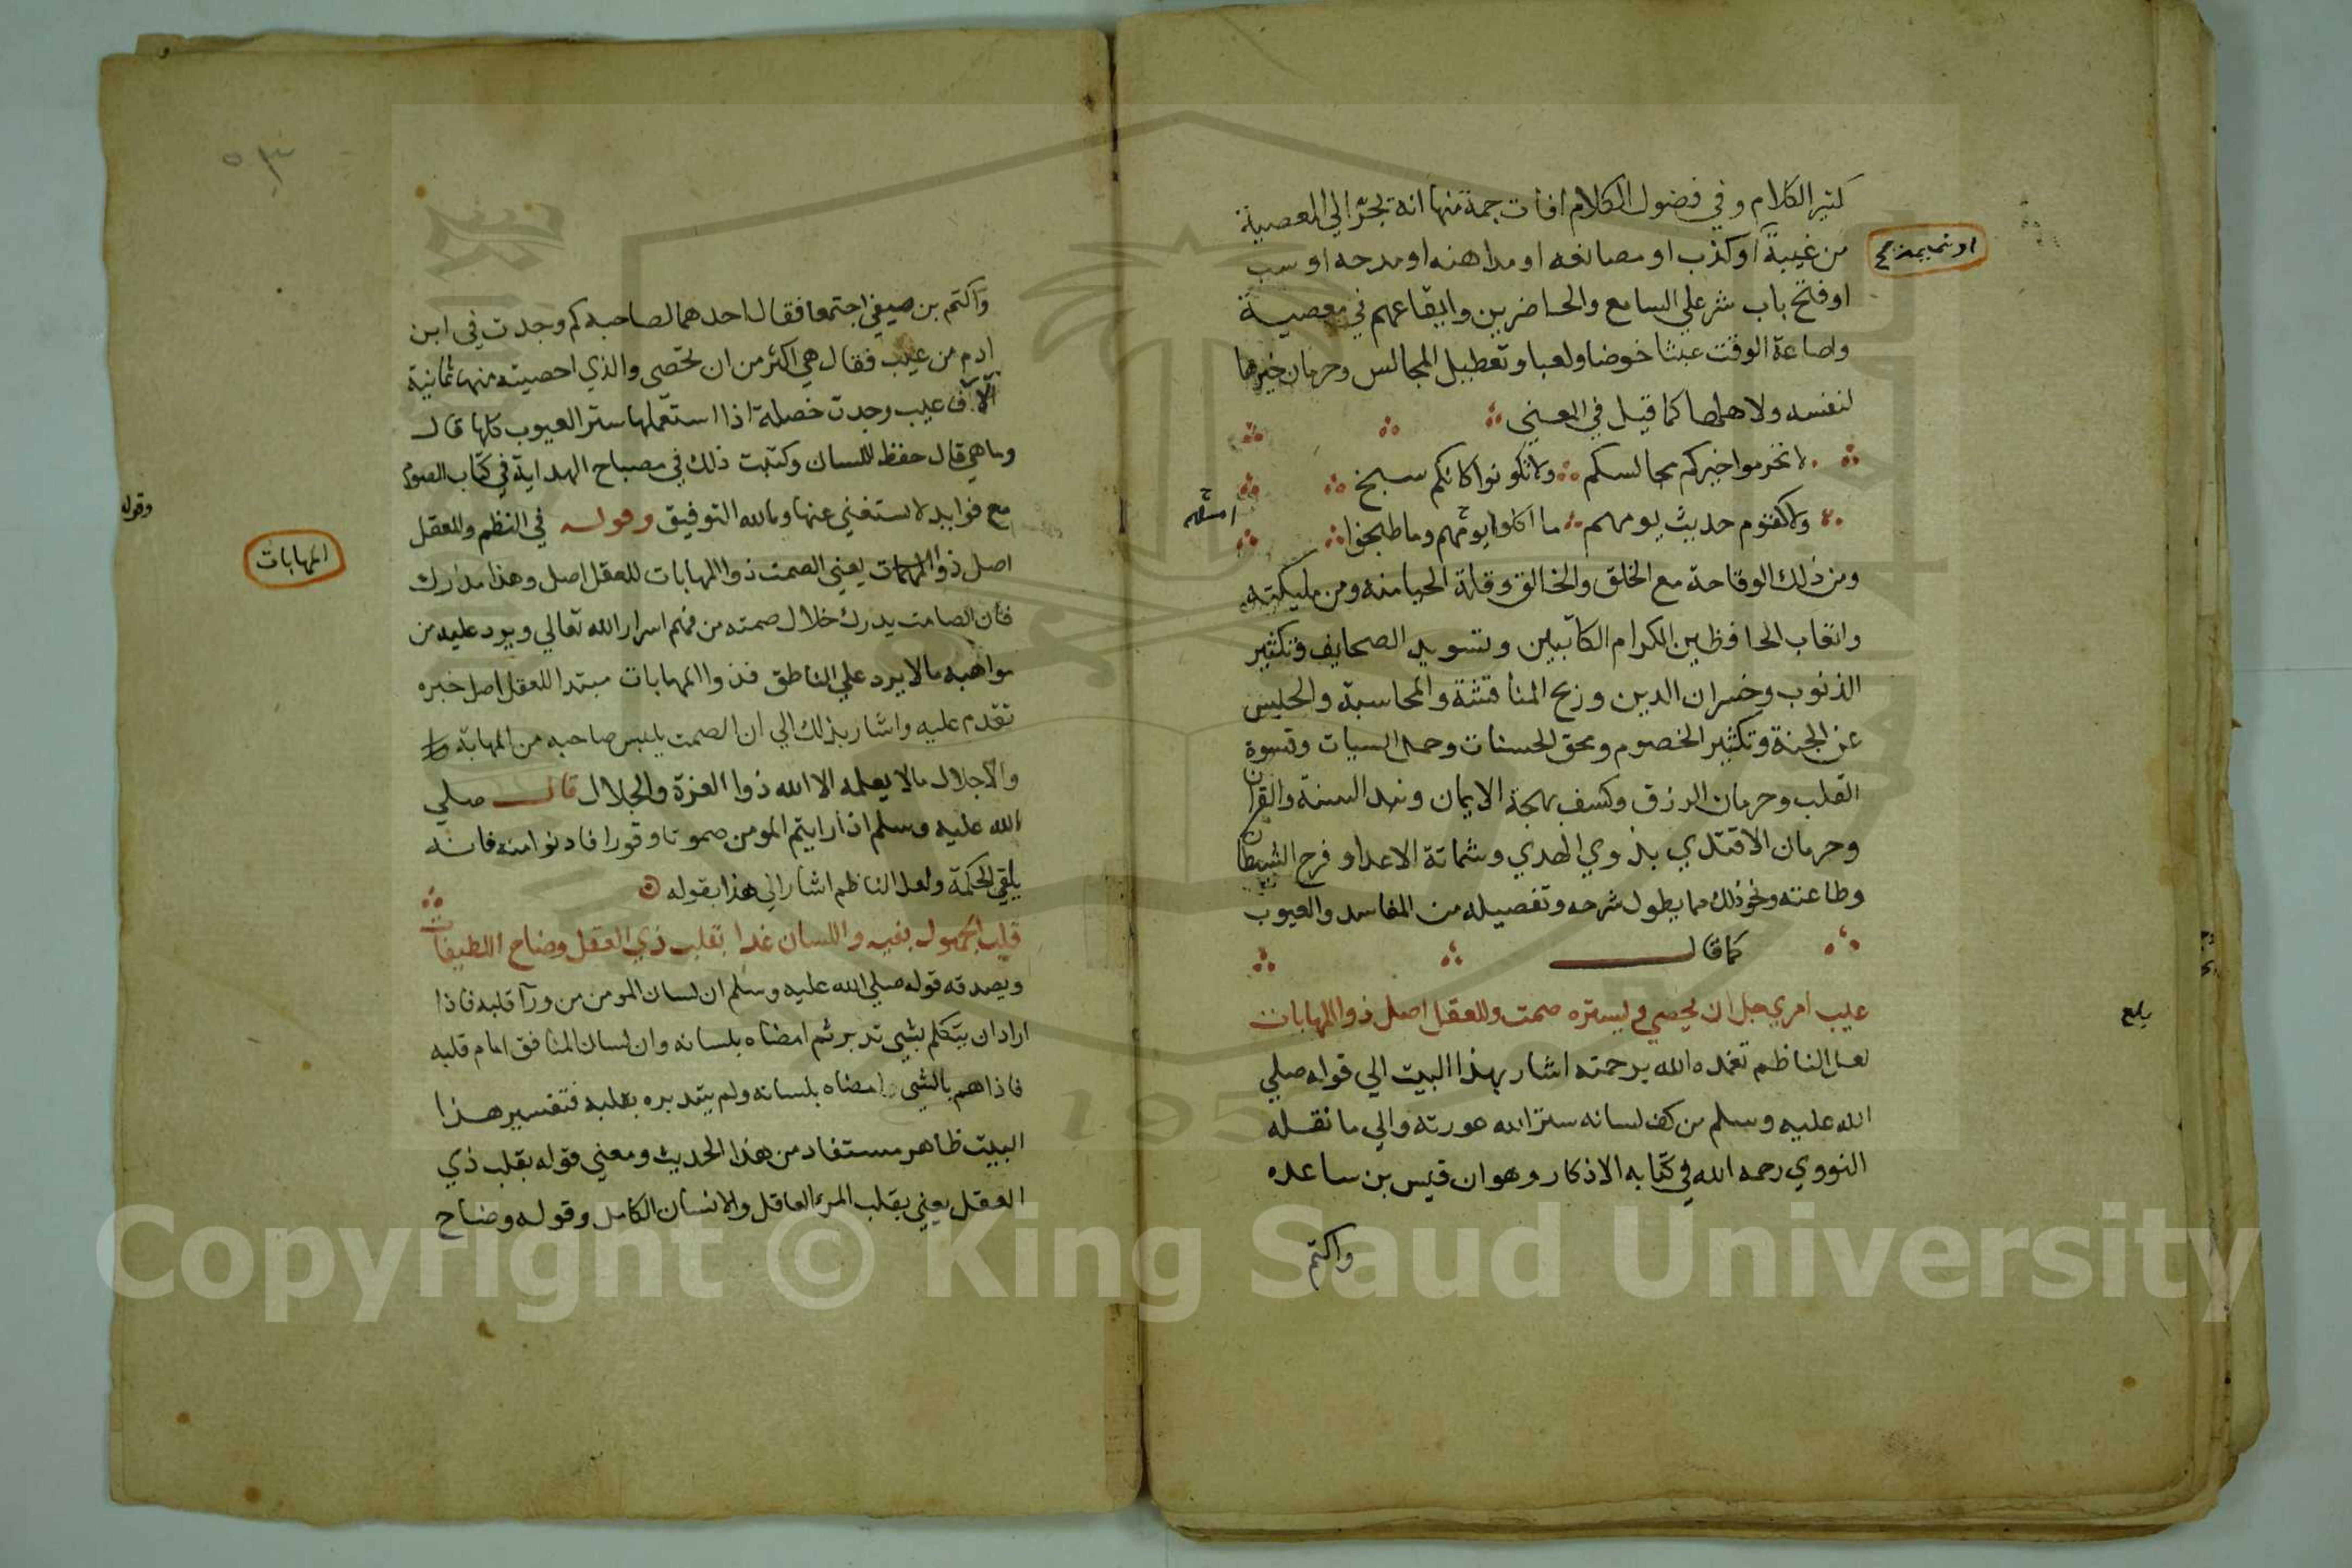 كثير الكلام وفي فضول الكلام افات جمة منها انه يجرّ الي المعصية
من غيبة او كذب او مصانعه او مداهنه او مدحه او سب
او نميمة صح
او فتح باب شر علي السامع والحاضرين وايقاعهم في معصية
واضاعة الوقت عبثا خوضا ولعبا وتعطيل المجالس وحرمان خيرها
لنفسه ولاهلها كما قيل في المعني
لا تحرموا خيركم مجالسكم ولا تكونوا كانكم سبخ
ولا كقوم حديث يومهم ما اكلوا يومهم وما طبخوا
ومن ذلك الوقاحة مع الخلق والخالق وقلة الحيا منه ومن مليكته
واتعاب الحافظين الكرام الكاتبين وتسويد الصحايف وتكثير
الذنوب وخسران الدين وربح المناقشة والمحاسبة والحبس
عن الجنة وتكثير الخصوم ومحق الحسنات وحمل السيات وقسوة
القلب وحرمان الرزق وكسف بهجة الايمان ونبد السنة والقران
وحرمان الاقتدي بذوي الهدي وشماتة الاعدا و فرح الشيطان
وطاعته ونحو ذلك مما يطول شرحه وتفصيله من المفاسد والعيوب
كما قال
عيب امري جل ان يحصي ويستره صمت وللعقل اصل ذوا المهابات
لعل الناظم تغمده الله برحمته اشار بهذا البيت الي قوله صلي
الله عليه وسلم من كف لسانه ستر الله عورته والي ما نقله
النووي رحمه الله في كتابه الاذكار وهو ان قيس بن ساعده
واكتم
٥٣
واكتم بن صيفي اجتمعا فقال احدهما لصاحبه كم وجدت في ابن
ادم من عيب فقال هي اكثر من ان تحصى والذي احصيته منها ثمانية
آلاف عيب وجدت خصلة اذا استعملها ستر العيوب كلها قال
وما هي قال حفظ اللسان وكتبت ذلك في مصباح الهداية في كتاب الصوم
مع فوايد لا يستغني عنها وبالله التوفيق وقوله في النظم وللعقل
اصل ذوا المهابات يعني الصمت ذوا المهابات للعقل اصل وهذا مدرك
المهابات
وقوله
فان الصامت يدرك خلال صمته من فهم اسرار الله تعالي ويرد عليه من
مواهبه ما لا يرد علي الناطق فذوا المهابات مبتدا للعقل اصل خبره
تقدم عليه واشار بذلك الي ان الصمت يلبس صاحبه من المهابة
والاجلال ما لا يعلمه الا الله ذوا العزة والجلال قال صلي
الله عليه وسلم اذا رايتم المومن صموتا وقورا فادنوا منه فانه
يلقي الحكمة ولعل الناظم اشار الي هذا بقوله
قلب الجهول بفيه واللسان غدا بقلب ذي العقل وضاح اللطيفات
ويصدقه قوله صلي الله عليه وسلم ان لسان المومن من ورآ قلبه فاذا
اراد ان يتكلم بشي تدبر ثم امضاه بلسانه وان لسان المنافق امام قلبه
فاذا هم بالشي امضاه بلسانه ولم يتدبره بقلبه فتفسير هذا
البيت ظاهر مستفاد من هذا الحديث ومعني قوله بقلب ذي
العقل يعني بقلب المرء العاقل والانسان الكامل وقوله وضاح
Copyright © King Saud University